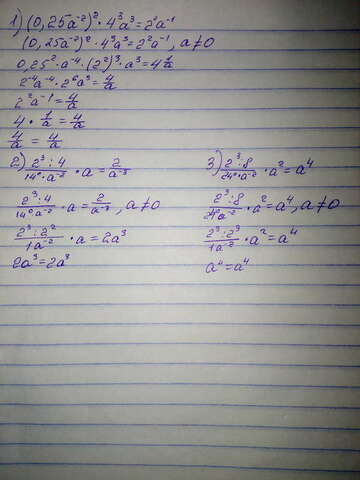 1) (0,25a⁻²)² · 4³a³ = 2²a⁻¹
(0,25a⁻²)² · 4³a³ = 2²a⁻¹, a≠0
0,25² · a⁻⁴ · (2²)³ · a³ = 4 1/a
2⁻⁴a⁻⁴ · 2⁶a³ = 4/a
2²a⁻¹ = 4/a
4 · 1/a = 4/a
4/a = 4/a
2) 2³:4/14⁰·a⁻² · a = 2/a⁻³
2³:4/14⁰a⁻² · a = 2/a⁻³, a≠0
2³:2²/1a⁻² · a = 2a³
2a³ = 2a³
3) 2³:8/24⁰·a⁻² · a² = a⁴
2³:8/24⁰a⁻² · a² = a⁴, a≠0
2³:2³/1a⁻² · a² = a⁴
a⁴ = a⁴